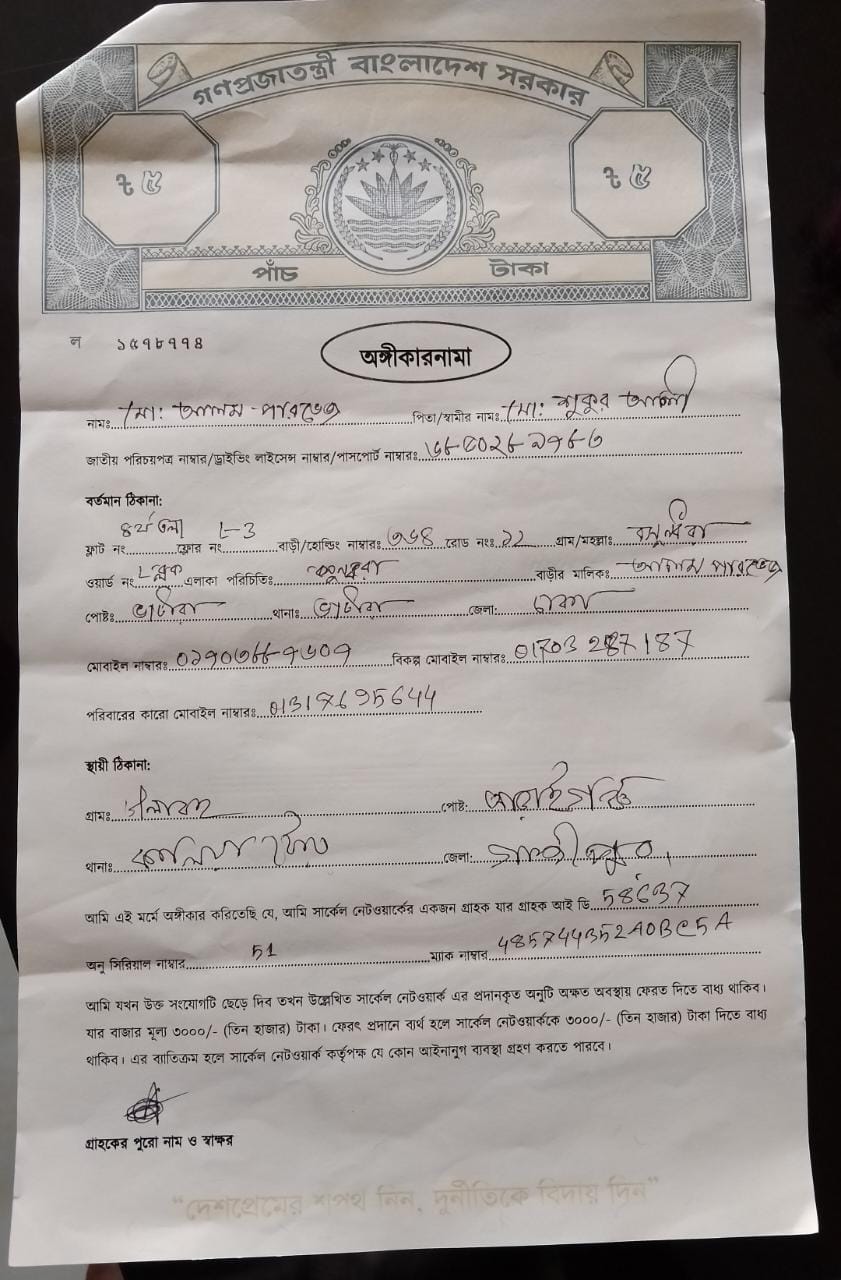 গণপ্রজাতন্ত্রী বাংলাদেশ সরকার
৳ ৫ ৳ ৫
পাঁচ টাকা
ল ১৫৭৮৭৭৪
অঙ্গীকারনামা
নামঃ মো: আলম পারভেজ পিতা/স্বামীর নামঃ মো: শুকুর আলী
জাতীয় পরিচয়পত্র নাম্বার/ড্রাইভিং লাইসেন্স নাম্বার/পাসপোর্ট নাম্বারঃ
বর্তমান ঠিকানা:
ফ্লাট নং ৪র্থ তলা ফ্লোর নং L-3 বাড়ী/হোল্ডিং নাম্বারঃ ৩৬৪ রোড নংঃ ১১ গ্রাম/মহল্লাঃ বসুন্ধরা
ওয়ার্ড নং L ব্লক এলাকা পরিচিতিঃ বসুন্ধরা বাড়ীর মালিকঃ আলাম পারভেজ
পোষ্টঃ ভাটারা থানাঃ ভাটারা জেলা: ঢাকা
মোবাইল নাম্বারঃ বিকল্প মোবাইল নাম্বারঃ
পরিবারের কারো মোবাইল নাম্বারঃ 01317695644
স্থায়ী ঠিকানা:
গ্রামঃ পোষ্ট:
থানাঃ জেলা: গাজীপুর
আমি এই মর্মে অঙ্গীকার করিতেছি যে, আমি সার্কেল নেটওয়ার্কের একজন গ্রাহক যার গ্রাহক আই ডি 58637
অনু সিরিয়াল নাম্বার 51 ম্যাক নাম্বার
আমি যখন উক্ত সংযোগটি ছেড়ে দিব তখন উল্লেখিত সার্কেল নেটওয়ার্ক এর প্রদানকৃত অনুটি অক্ষত অবস্থায় ফেরত দিতে বাধ্য থাকিব।
যার বাজার মূল্য ৩০০০/- (তিন হাজার) টাকা। ফেরৎ প্রদানে ব্যর্থ হলে সার্কেল নেটওয়ার্ককে ৩০০০/- (তিন হাজার) টাকা দিতে বাধ্য
থাকিব। এর ব্যতিক্রম হলে সার্কেল নেটওয়ার্ক কর্তৃপক্ষ যে কোন আইনানুগ ব্যবস্থা গ্রহণ করতে পারবে।
গ্রাহকের পুরো নাম ও স্বাক্ষর
“দেশপ্রেমের শপথ নিন, দুর্নীতিকে বিদায় দিন”